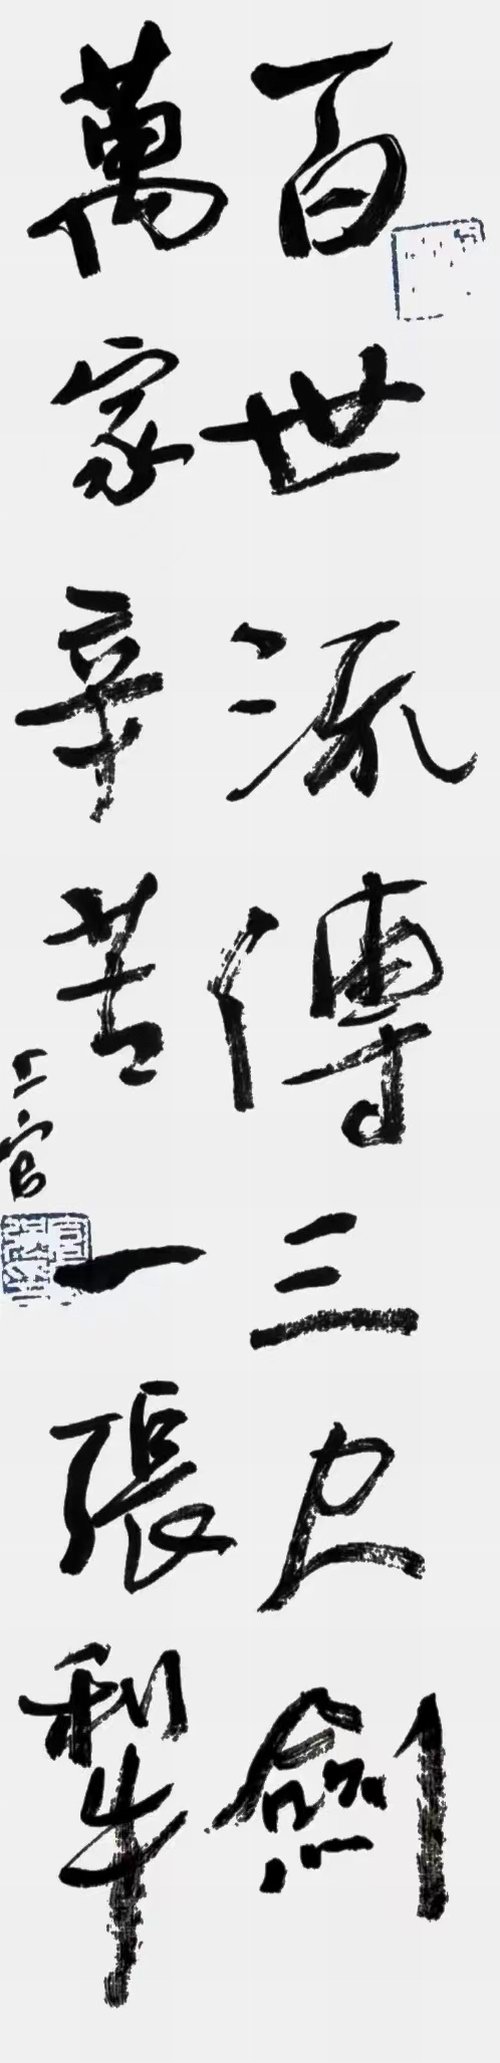 百世流傳三尺劍
萬家辛苦一張犁
上官